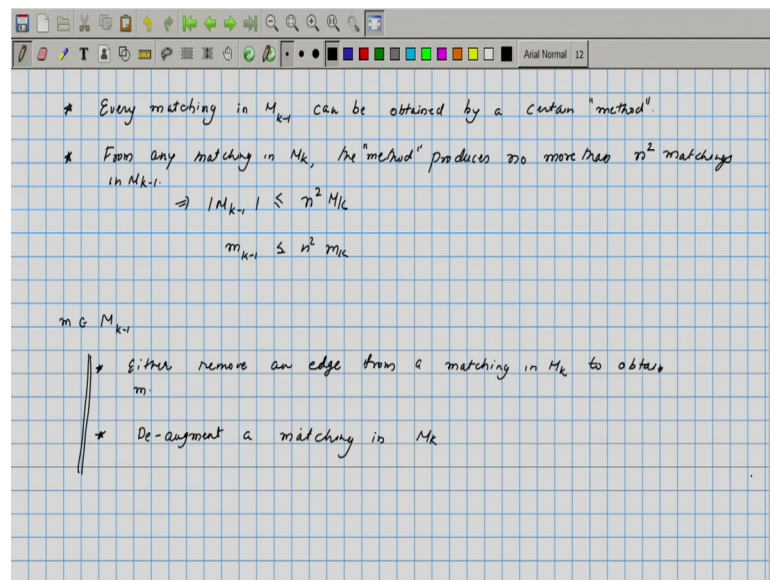 T
Arial Normal 12
* Every matching in M_{k-1} can be obtained by a certain "method".
* From any matching in M_k, the "method" produces no more than n² matchings
in M_{k-1}.
⇒ |M_{k-1}| ≤ n² M_k
m_{k-1} ≤ n² m_k
m ∈ M_{k-1}
* Either remove an edge from a matching in M_k to obtain
m.
* De-augment a matching in M_k